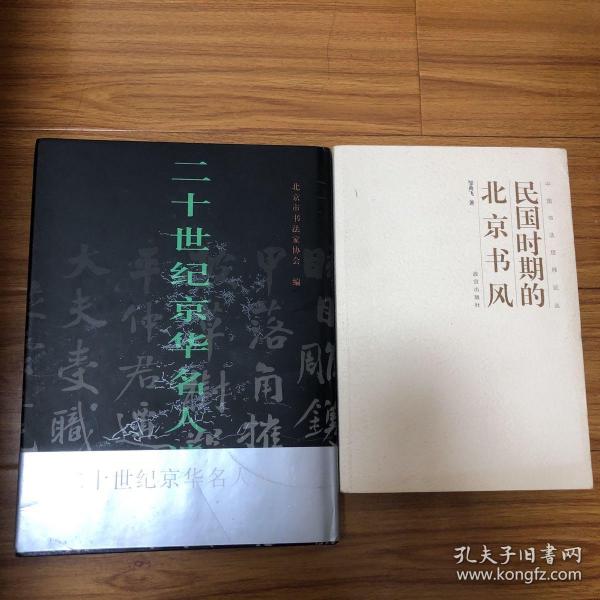 二十世纪京华名人
北京市书法家协会 编
甲落角摧
大夫受職
二十世纪京华名人
中国书法经纬论丛
民国时期的
北京书风
邹典飞 著
故宫出版社
孔夫子旧书网
www.kongfz.com